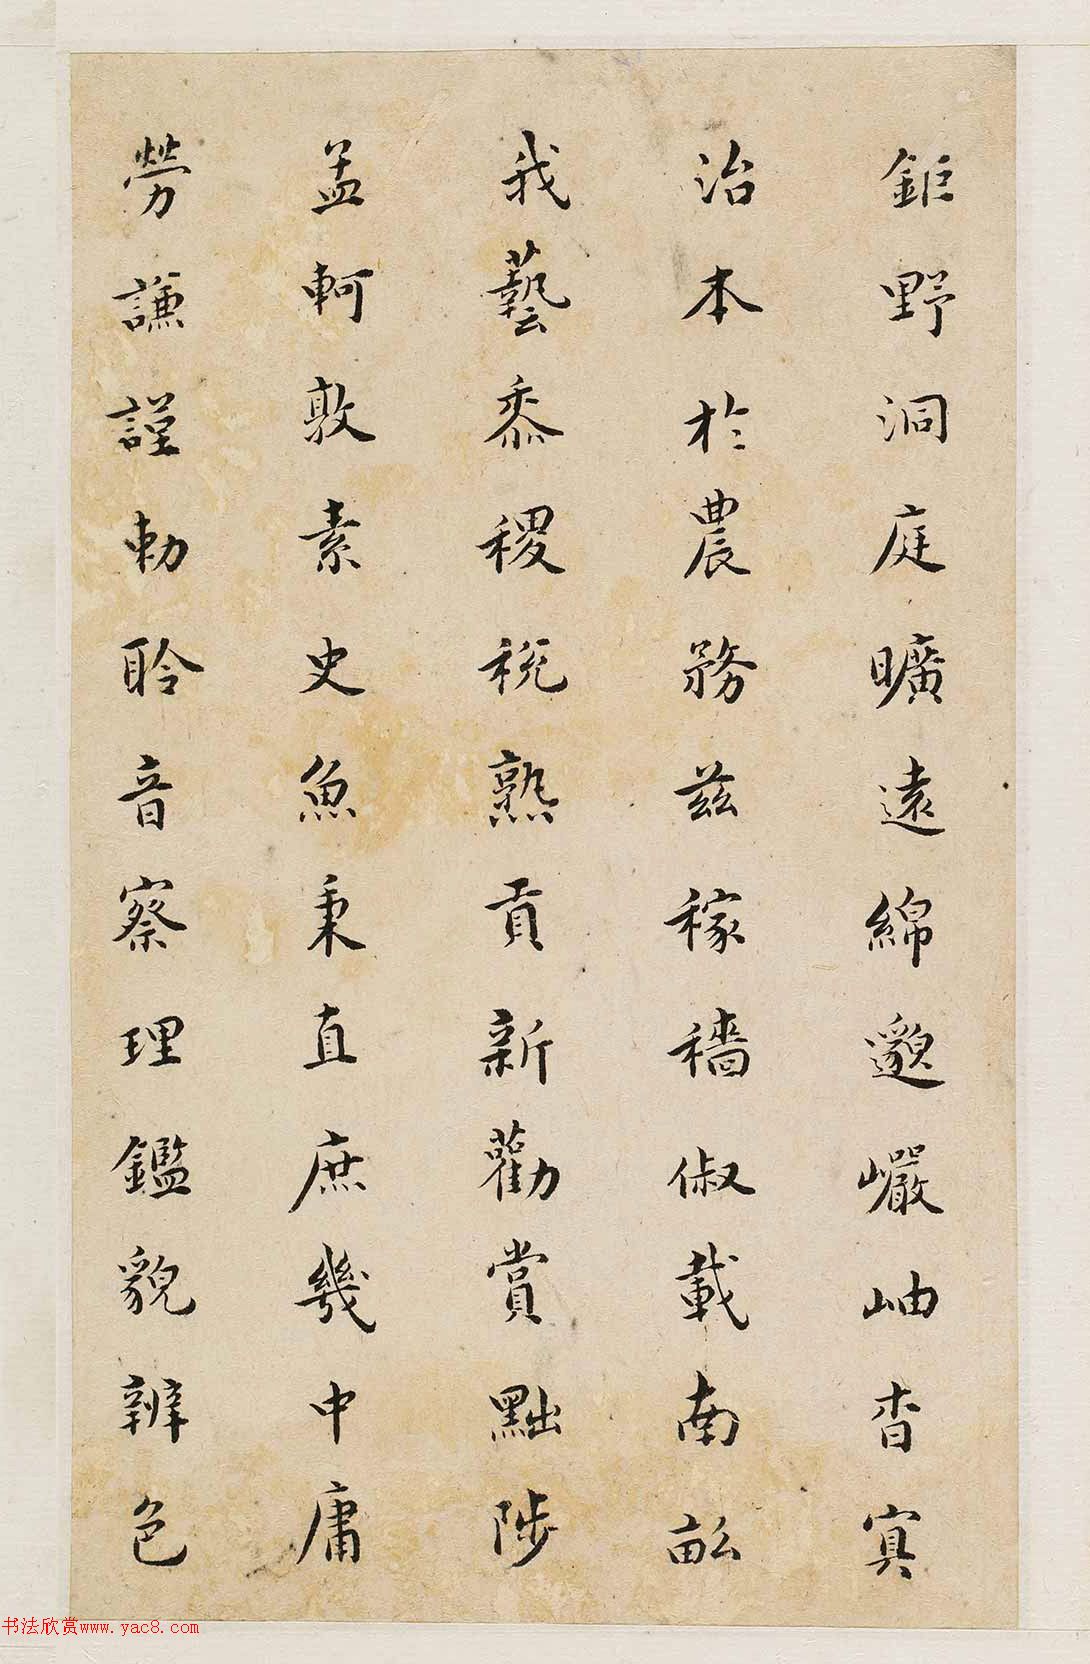 鉅野洞庭曠遠綿邈巖岫杳冥
治本於農務茲稼穡俶載南畝
我藝黍稷稅熟貢新勸賞黜陟
孟軻敦素史魚秉直庶幾中庸
勞謙謹勅聆音察理鑑貌辨色
书法欣赏www.yac8.com